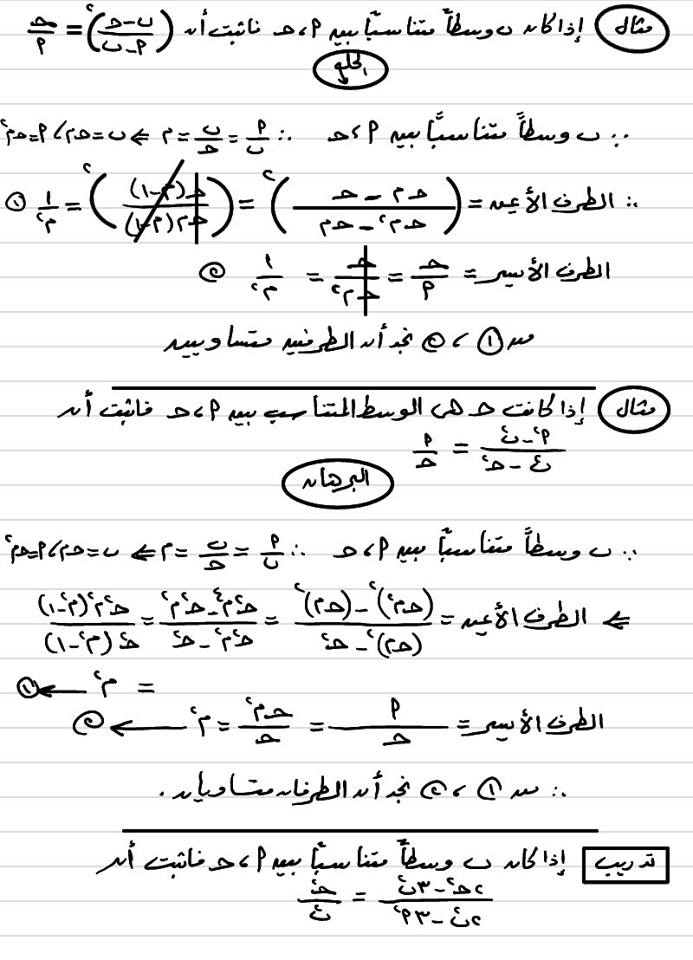 مثال إذا كان ب وسطاً متناسباً بين أ ، جـ فاثبت أن (ب-جـ/أ-ب)² = جـ/أ
الحل
∵ ب وسطاً متناسباً بين أ ، جـ ∴ أ/ب = ب/جـ = م ⇐ ب = جـ م ، أ = جـ م²
∴ الطرف الأيمن = (جـ م - جـ/جـ م² - جـ م)² = (جـ(م-١)/جـ م(م-١))² = ١/م² ①
الطرف الأيسر = جـ/أ = جـ/جـ م² = ١/م² ②
من ① ، ② نجد أن الطرفين متساويين
مثال إذا كانت جـ هي الوسط المتناسب بين أ ، جـ فاثبت أن
أ² - ب²/ب² - جـ² = أ/جـ
البرهان
∵ ب وسطاً متناسباً بين أ ، جـ ∴ أ/ب = ب/جـ = م ⇐ ب = جـ م ، أ = جـ م²
⇐ الطرف الأيمن = (جـ م²)² - (جـ م)²/(جـ م)² - جـ² = جـ² م⁴ - جـ² م²/جـ² م² - جـ² = جـ² م²(م² - ١)/جـ²(م² - ١)
= م² ← ①
الطرف الأيسر = أ/جـ = جـ م²/جـ = م² ← ②
∴ من ① ، ② نجد أن الطرفان متساويان .
تدريب إذا كان ب وسطاً متناسباً بين أ ، جـ فاثبت أن
٢جـ² - ٣ب²/٢ب² - ٣أ² = جـ²/ب²